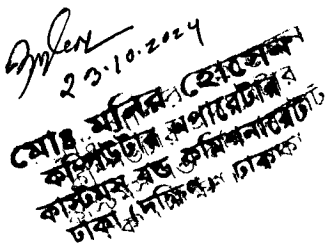 23.10.2024
মোঃ মনির হোসেন
কম্পিউটার অপারেটর
কাস্টমস বন্ড কমিশনারেট
ঢাকা (দক্ষিণ), ঢাকা